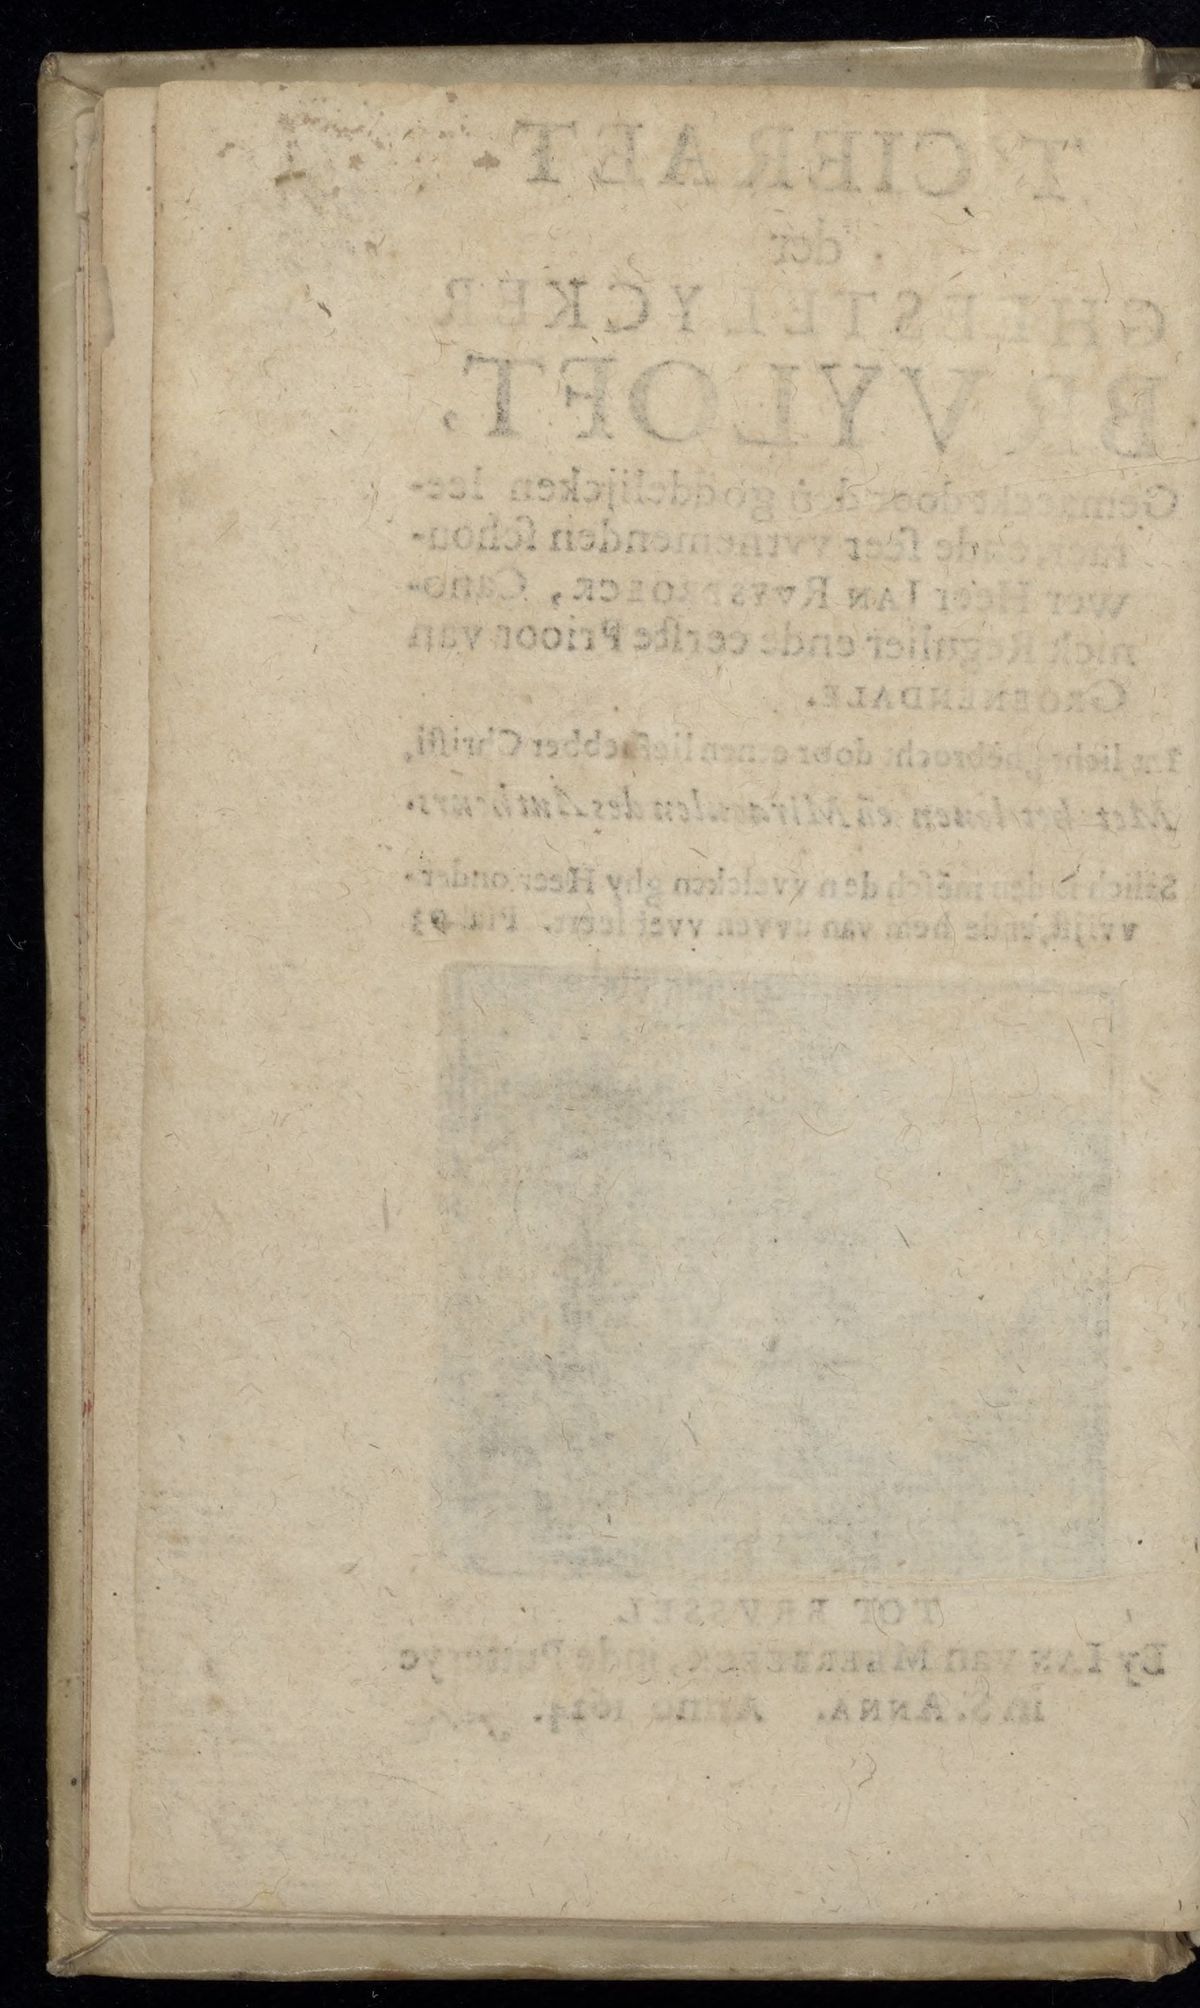 T'CIERAET
der
GHEESTELYCKER
BRVYLOFT,
Gemaeckt door dē goddelijcken lee-
raer, ende seer vytnemenden schou-
wer Heer IAN RVYSBROECK, Cano-
nick Regulier ende eerste Prioor van
GROENENDALE.
Int licht ghebrocht door eenen liefhebber Christi,
Met het leuen eñ Miraculen des Autheurs.
Salich is den mēsch den vvelcken ghy Heer onder-
vvijst, ende hem van uvven vvet leert. Psal. 93
TOT BRVSSEL
By IAN van MEERBEECK, inde Putteryc
in S. ANNA. Anno 1624.